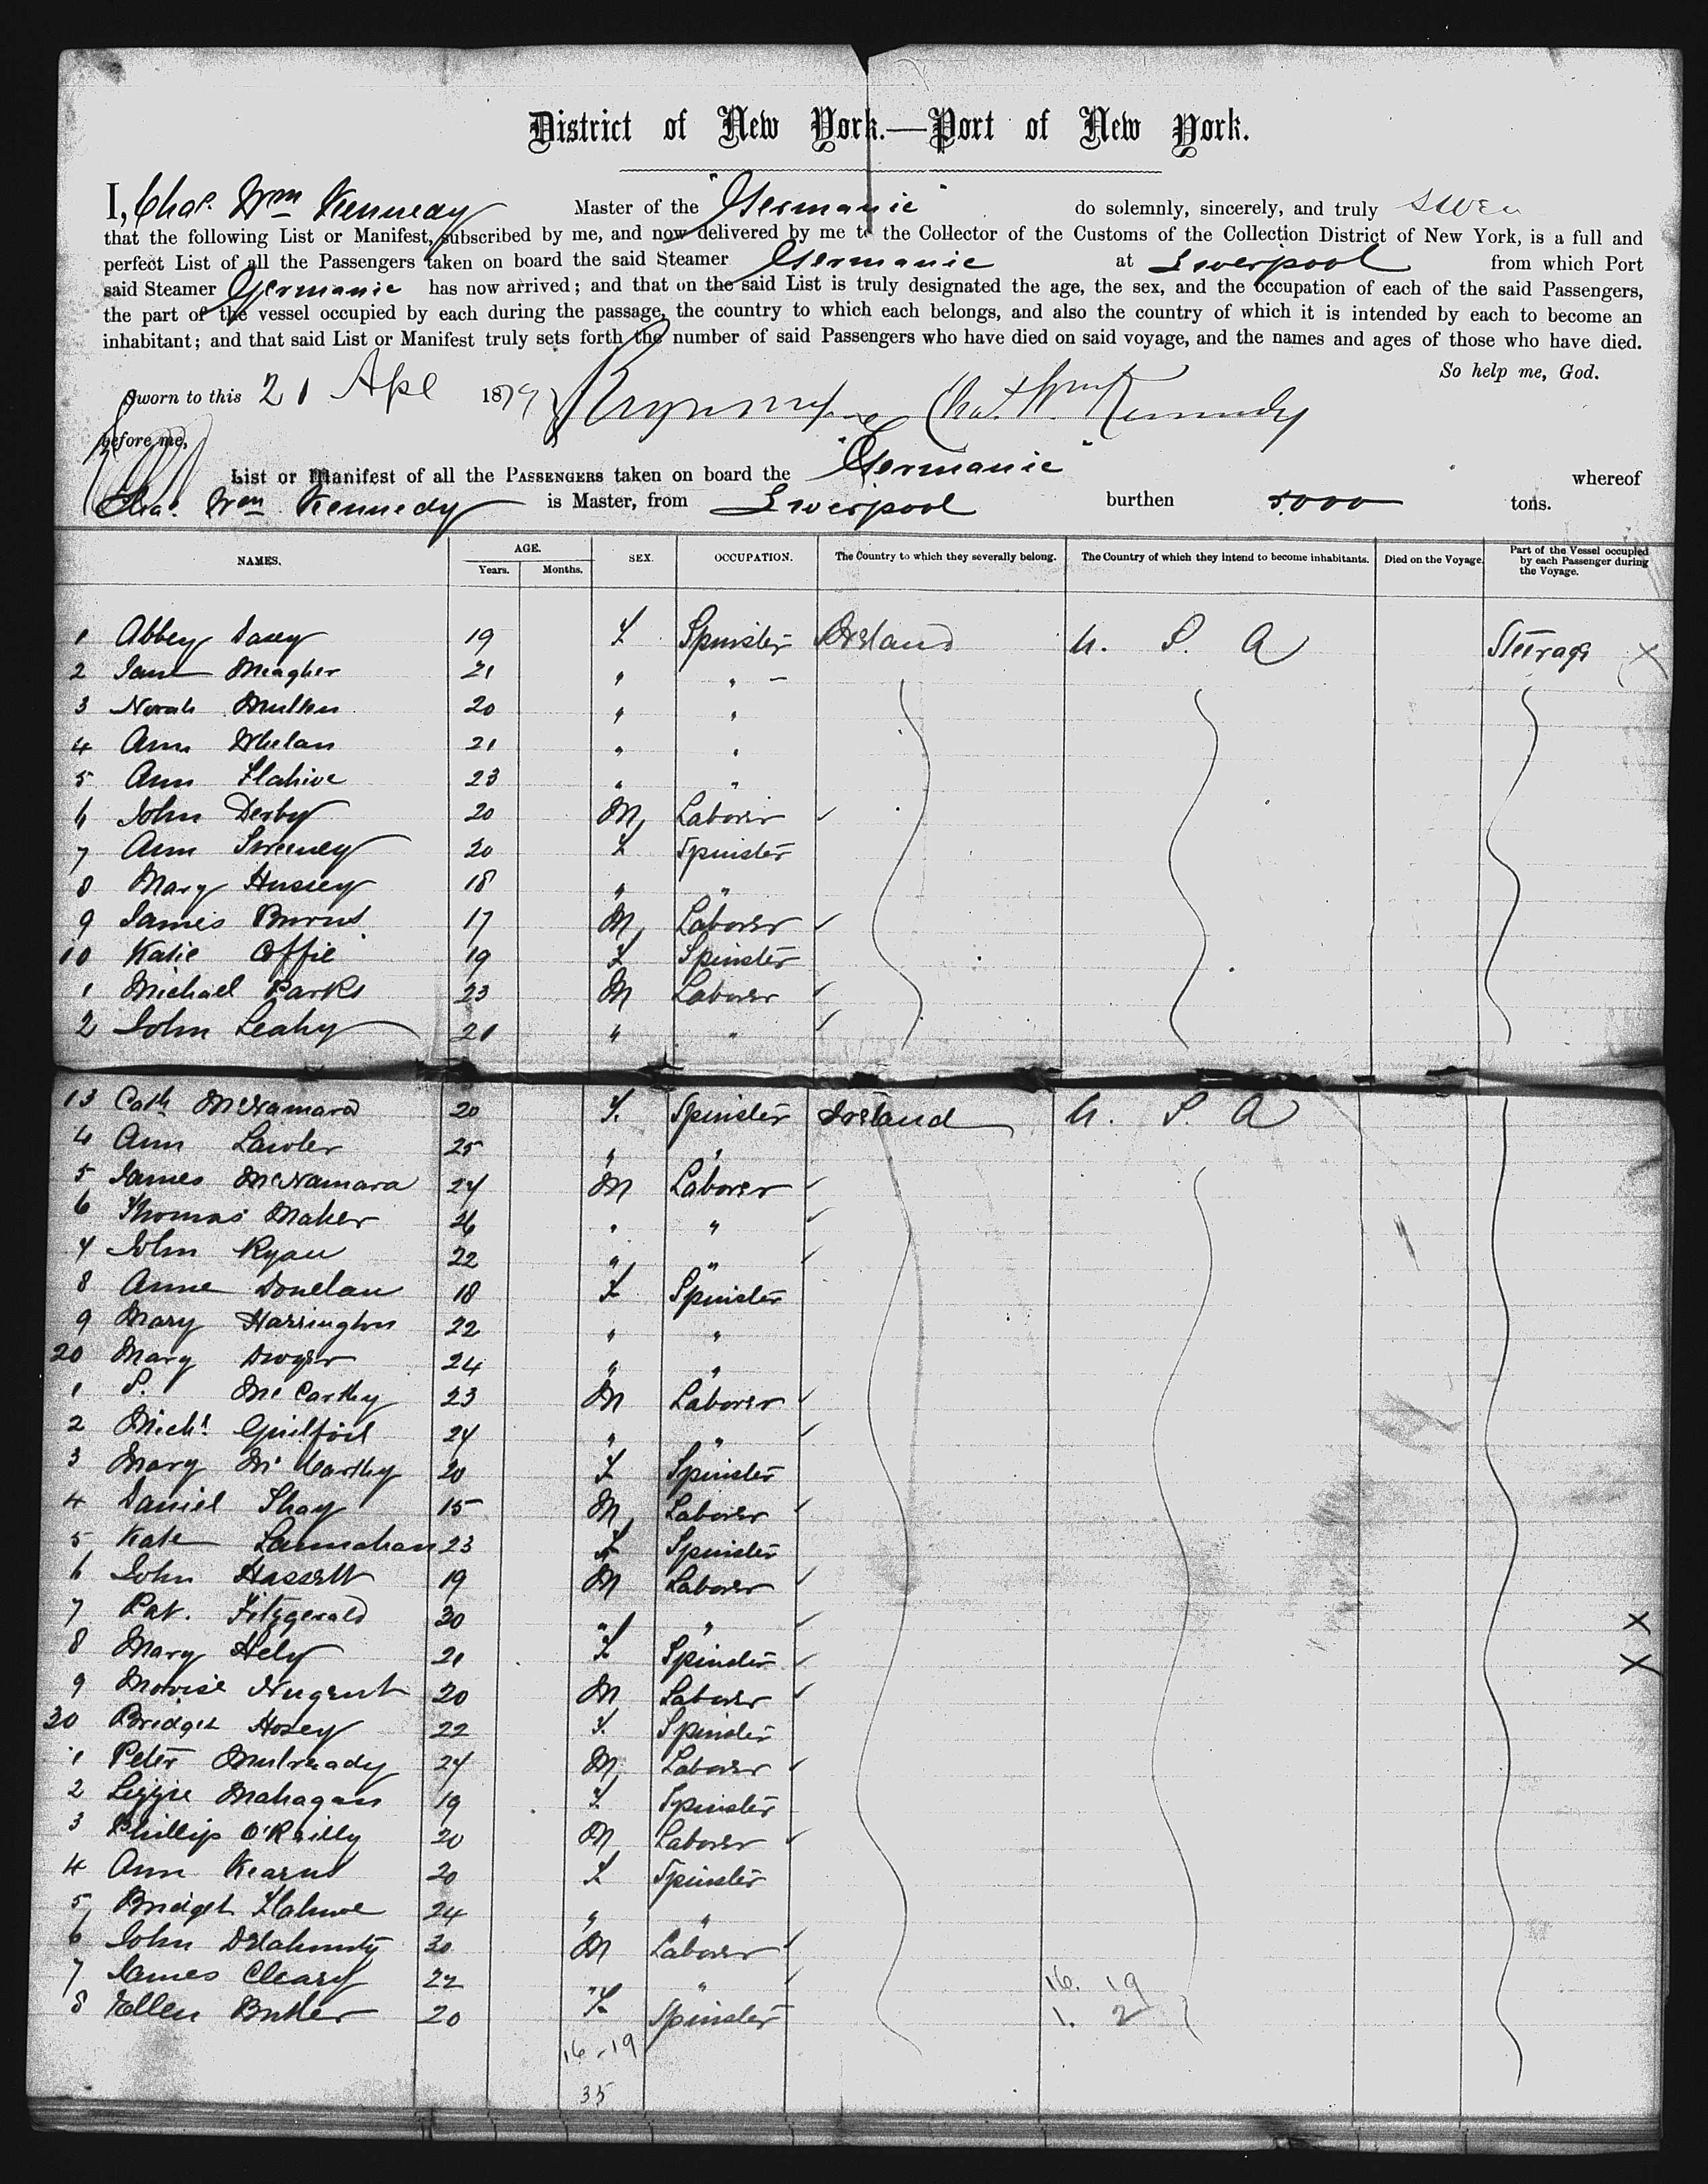 District of New York.—Port of New York.
I, Chas. Wm Kennedy Master of the "Germanic" do solemnly, sincerely, and truly swear
that the following List or Manifest, subscribed by me, and now delivered by me to the Collector of the Customs of the Collection District of New York, is a full and
perfect List of all the Passengers taken on board the said Steamer Germanic at Liverpool from which Port
said Steamer Germanic has now arrived; and that on the said List is truly designated the age, the sex, and the occupation of each of the said Passengers,
the part of the vessel occupied by each during the passage, the country to which each belongs, and also the country of which it is intended by each to become an
inhabitant; and that said List or Manifest truly sets forth the number of said Passengers who have died on said voyage, and the names and ages of those who have died.
So help me, God.
Sworn to this 21 Apl 1879 Chas. Wm Kennedy
before me,
List or Manifest of all the PASSENGERS taken on board the "Germanic" whereof
Chas. Wm Kennedy is Master, from Liverpool burthen 5.000 tons.
NAMES. AGE. Years. Months. SEX. OCCUPATION. The Country to which they severally belong. The Country of which they intend to become inhabitants. Died on the Voyage. Part of the Vessel occupied by each Passenger during the Voyage.
1 Abbey Dasey 19 F Spinster Ireland U. S. A Steerage X
2 Jane Meagher 21 " "
3 Norah Mullen 20 " "
4 Ann Whelan 21 " "
5 Ann Flahive 23 " "
6 John Derby 20 M Laborer ✓
7 Ann Sweeney 20 F Spinster
8 Mary Hussey 18 " "
9 James Burns 17 M Laborer ✓
10 Katie Coffie 19 F Spinster
1 Michael Parks 23 M Laborer ✓
2 John Leahy 21 " " ✓
13 Cath McNamara 20 F. Spinster Ireland U. S. A
4 Ann Lawler 25 " "
5 James McNamara 24 M Laborer ✓
6 Thomas Maher 26 " " ✓
7 John Ryan 22 " " ✓
8 Anne Donelan 18 F Spinster
9 Mary Harrington 22 " "
20 Mary Dwyer 24 " "
1 P. McCarthy 23 M Laborer ✓
2 Michl Guilfoil 24 " " ✓
3 Mary McCarthy 20 F Spinster
4 Daniel Shay 15 M Laborer ✓
5 Kate 23 F Spinster
6 John Hassett 19 M Laborer ✓
7 Pat. Fitzgerald 30 " " ✓ X
8 Mary Hely 21 F Spinster ✓ X
9 Nugent 20 M Laborer ✓
30 Bridget Hosey 22 F. Spinster
1 Peter Mulready 24 M Laborer ✓
2 Lizzie Mahagan 19 F. Spinster
3 Phillip O'Reilly 20 M Laborer ✓
4 Ann Kearns 20 F Spinster
5 Bridget Flahive 24 " "
6 John Delahunty 30 M Laborer ✓
7 James Cleary 22 " " ✓ 16. 19
8 Ellen Butler 20 F Spinster 1. 2
16-19
35